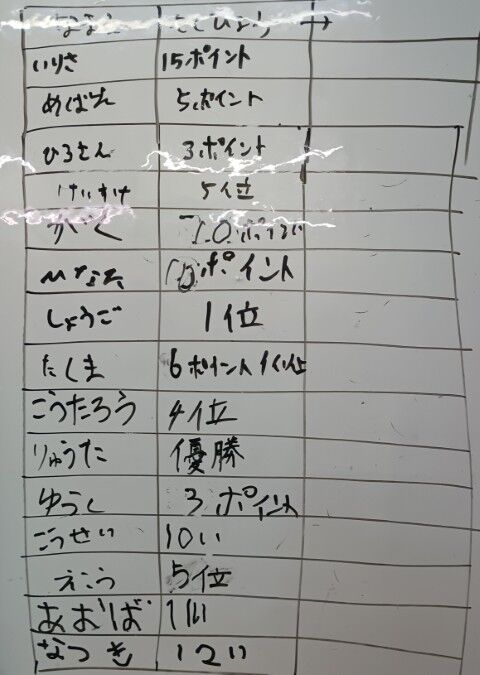 なまえ もくひょう →
いりさ 15ポイント
めばえ 5ポイント
ひろさん 3ポイント
けいすけ 5位
がく 10ポイント
ポイント
しょうご 1位
たくま 6ポイント
こうたろう 4位
りゅうた 優勝
ゆうく 3ポイント
こうせい 10い
えこう 5位
あおば 1い
なつき 12い